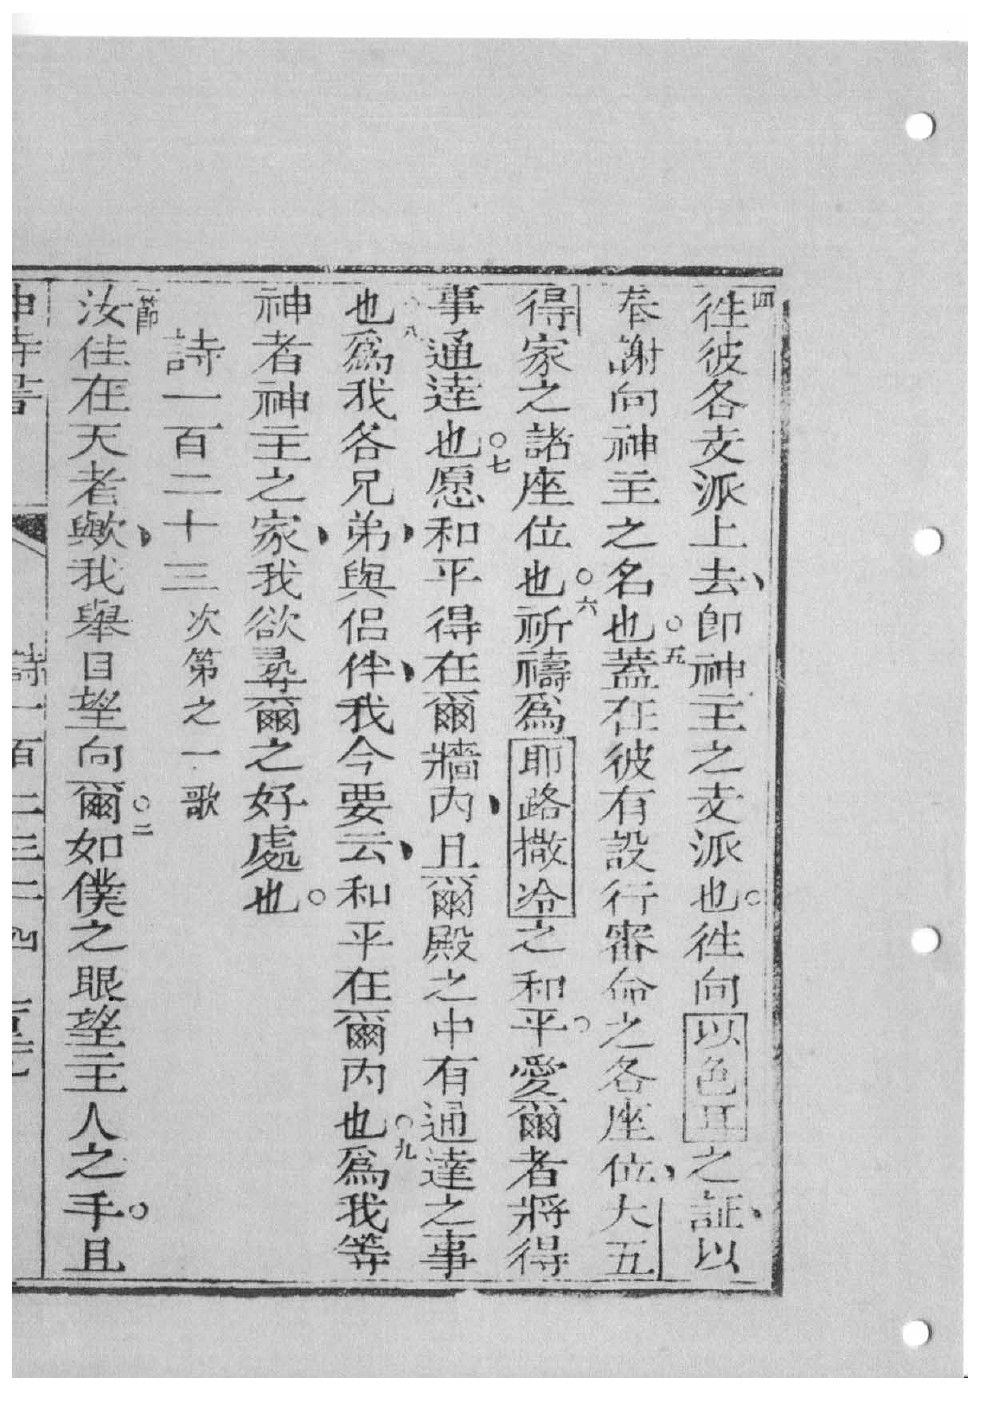 四徃彼各支派上去、即神主之支派也。徃向以色耳之証、以
奉謝向神主之名也○五蓋在彼有設行審命之各座位、大五
得家之諸座位也○六祈禱爲耶路撒冷之和平。愛爾者將得
事通達也○七愿和平得在爾牆內、且爾殿之中有通達之事
也○八爲我各兄弟、與侶伴、我今要云、和平在爾內也○九爲我等
神者神主之家、我欲尋爾之好處也。
詩一百二十三次第之一歌
一節汝住在天者歟、我舉目望向爾○二如僕之眼望主人之手。且
神詩書 詩一百二三二四